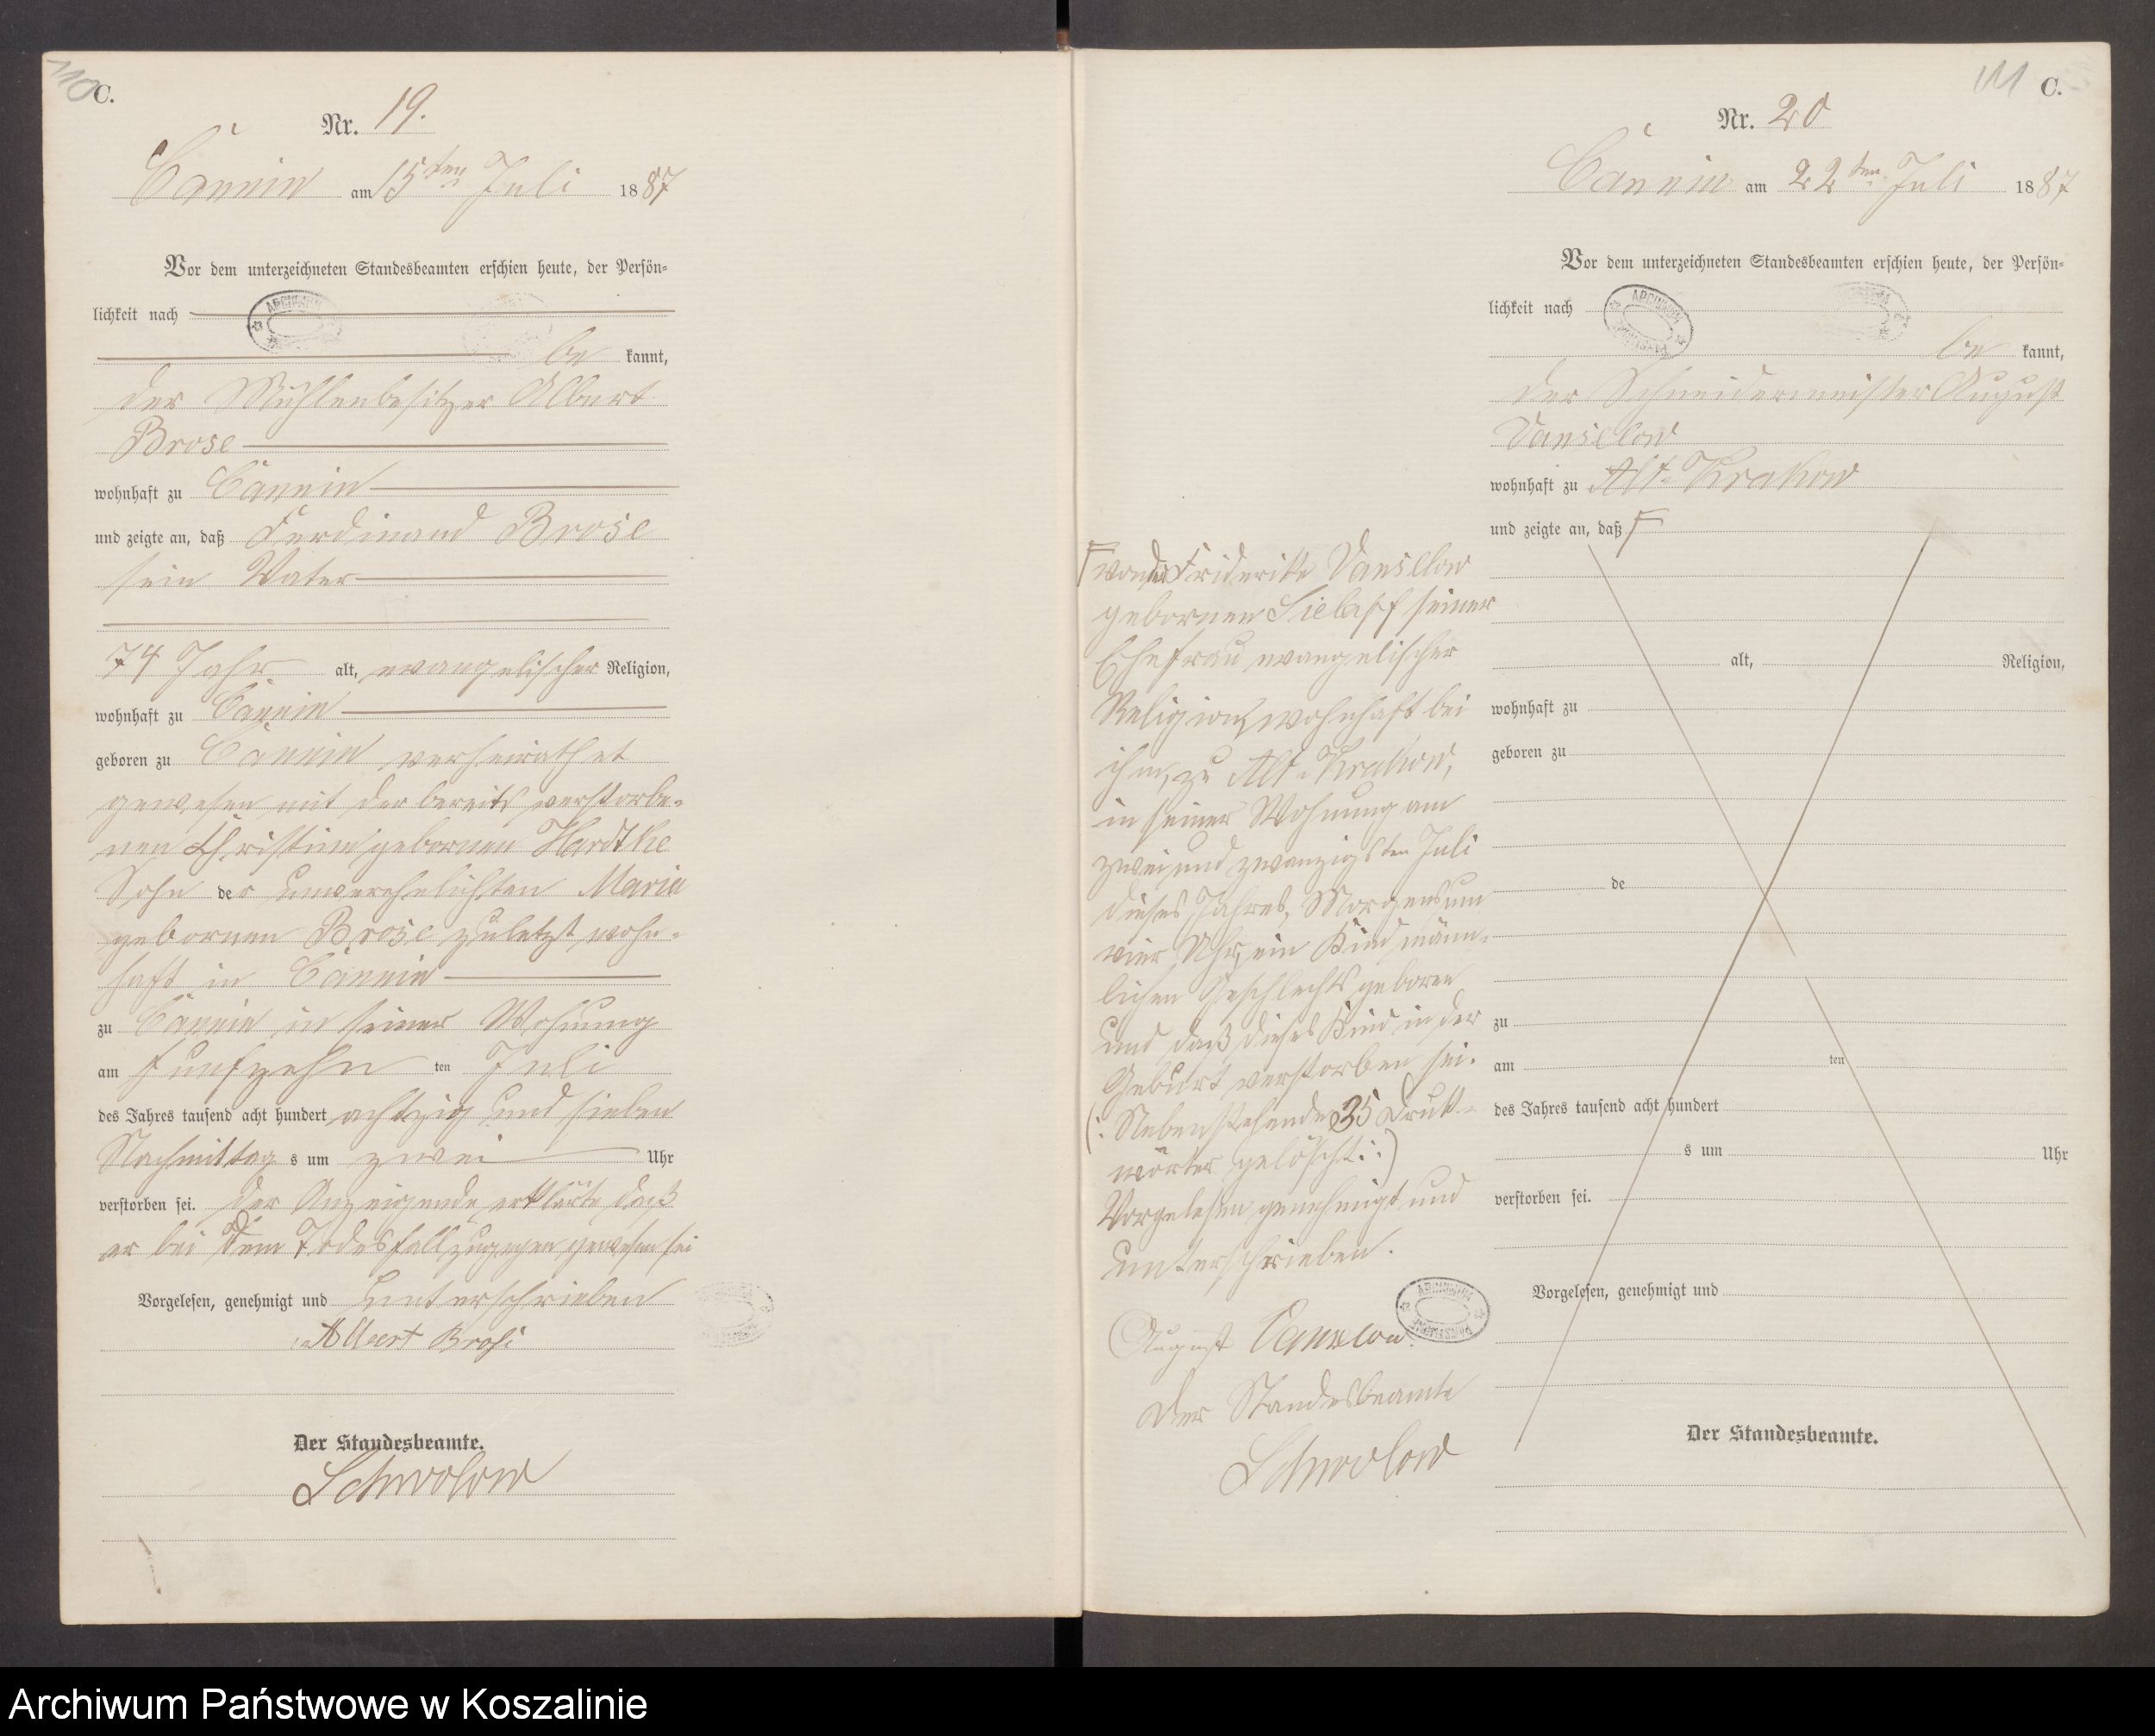 110
C.
Nr. 19.
Cannin am 15ten Juli 1887
Vor dem unterzeichneten Standesbeamten erschien heute, der Persön-
lichkeit nach
be kannt,
der Mühlenbesitzer Albert
Brose
wohnhaft zu Cannin
und zeigte an, daß Ferdinand Brose
sein Vater
74 Jahr alt, evangelischer Religion,
wohnhaft zu Cannin
geboren zu Cannin verheirathet
gewesen mit der bereits verstorbe-
nen Christine gebornen Hardtke
Sohn der unverehelichten Maria
gebornen Brose zuletzt wohn-
haft in Cannin
zu Cannin in seiner Wohnung
am fünfzehn ten Juli
des Jahres tausend acht hundert achtzig und sieben
Nachmittag s um zwei Uhr
verstorben sei. Der Anzeigende erklärte daß
er bei dem Todesfall zugegen gewesen sei
Vorgelesen, genehmigt und unterschrieben
Albert Brose
Der Standesbeamte.
Schwolow
111
C.
Nr. 20
Cannin am 22ten Juli 1887
Vor dem unterzeichneten Standesbeamten erschien heute, der Persön-
lichkeit nach
be kannt,
der Schneidermeister August
Vanselow
wohnhaft zu Alt-Krakow
und zeigte an, daß
alt, Religion,
wohnhaft zu
geboren zu
de
zu
am ten
des Jahres tausend acht hundert
s um Uhr
verstorben sei.
Vorgelesen, genehmigt und
Der Standesbeamte.
von der Friderike Vanselow
gebornen Sielaff seiner
Ehefrau evangelischer
Religion, wohnhaft bei
ihm, zu Alt-Krakow,
in seiner Wohnung am
zwei und zwanzigsten Juli
dieses Jahres, Morgens um
vier Uhr, ein Kind männ-
lichen Geschlechts geboren
und daß dieses Kind in der
Geburt verstorben sei.
(: Nebenstehende 35 Druck-
wörter gelöscht :)
Vorgelesen genehmigt und
unterschrieben.
August Vanselow
Der Standesbeamte
Schwolow
Archiwum Państwowe w Koszalinie